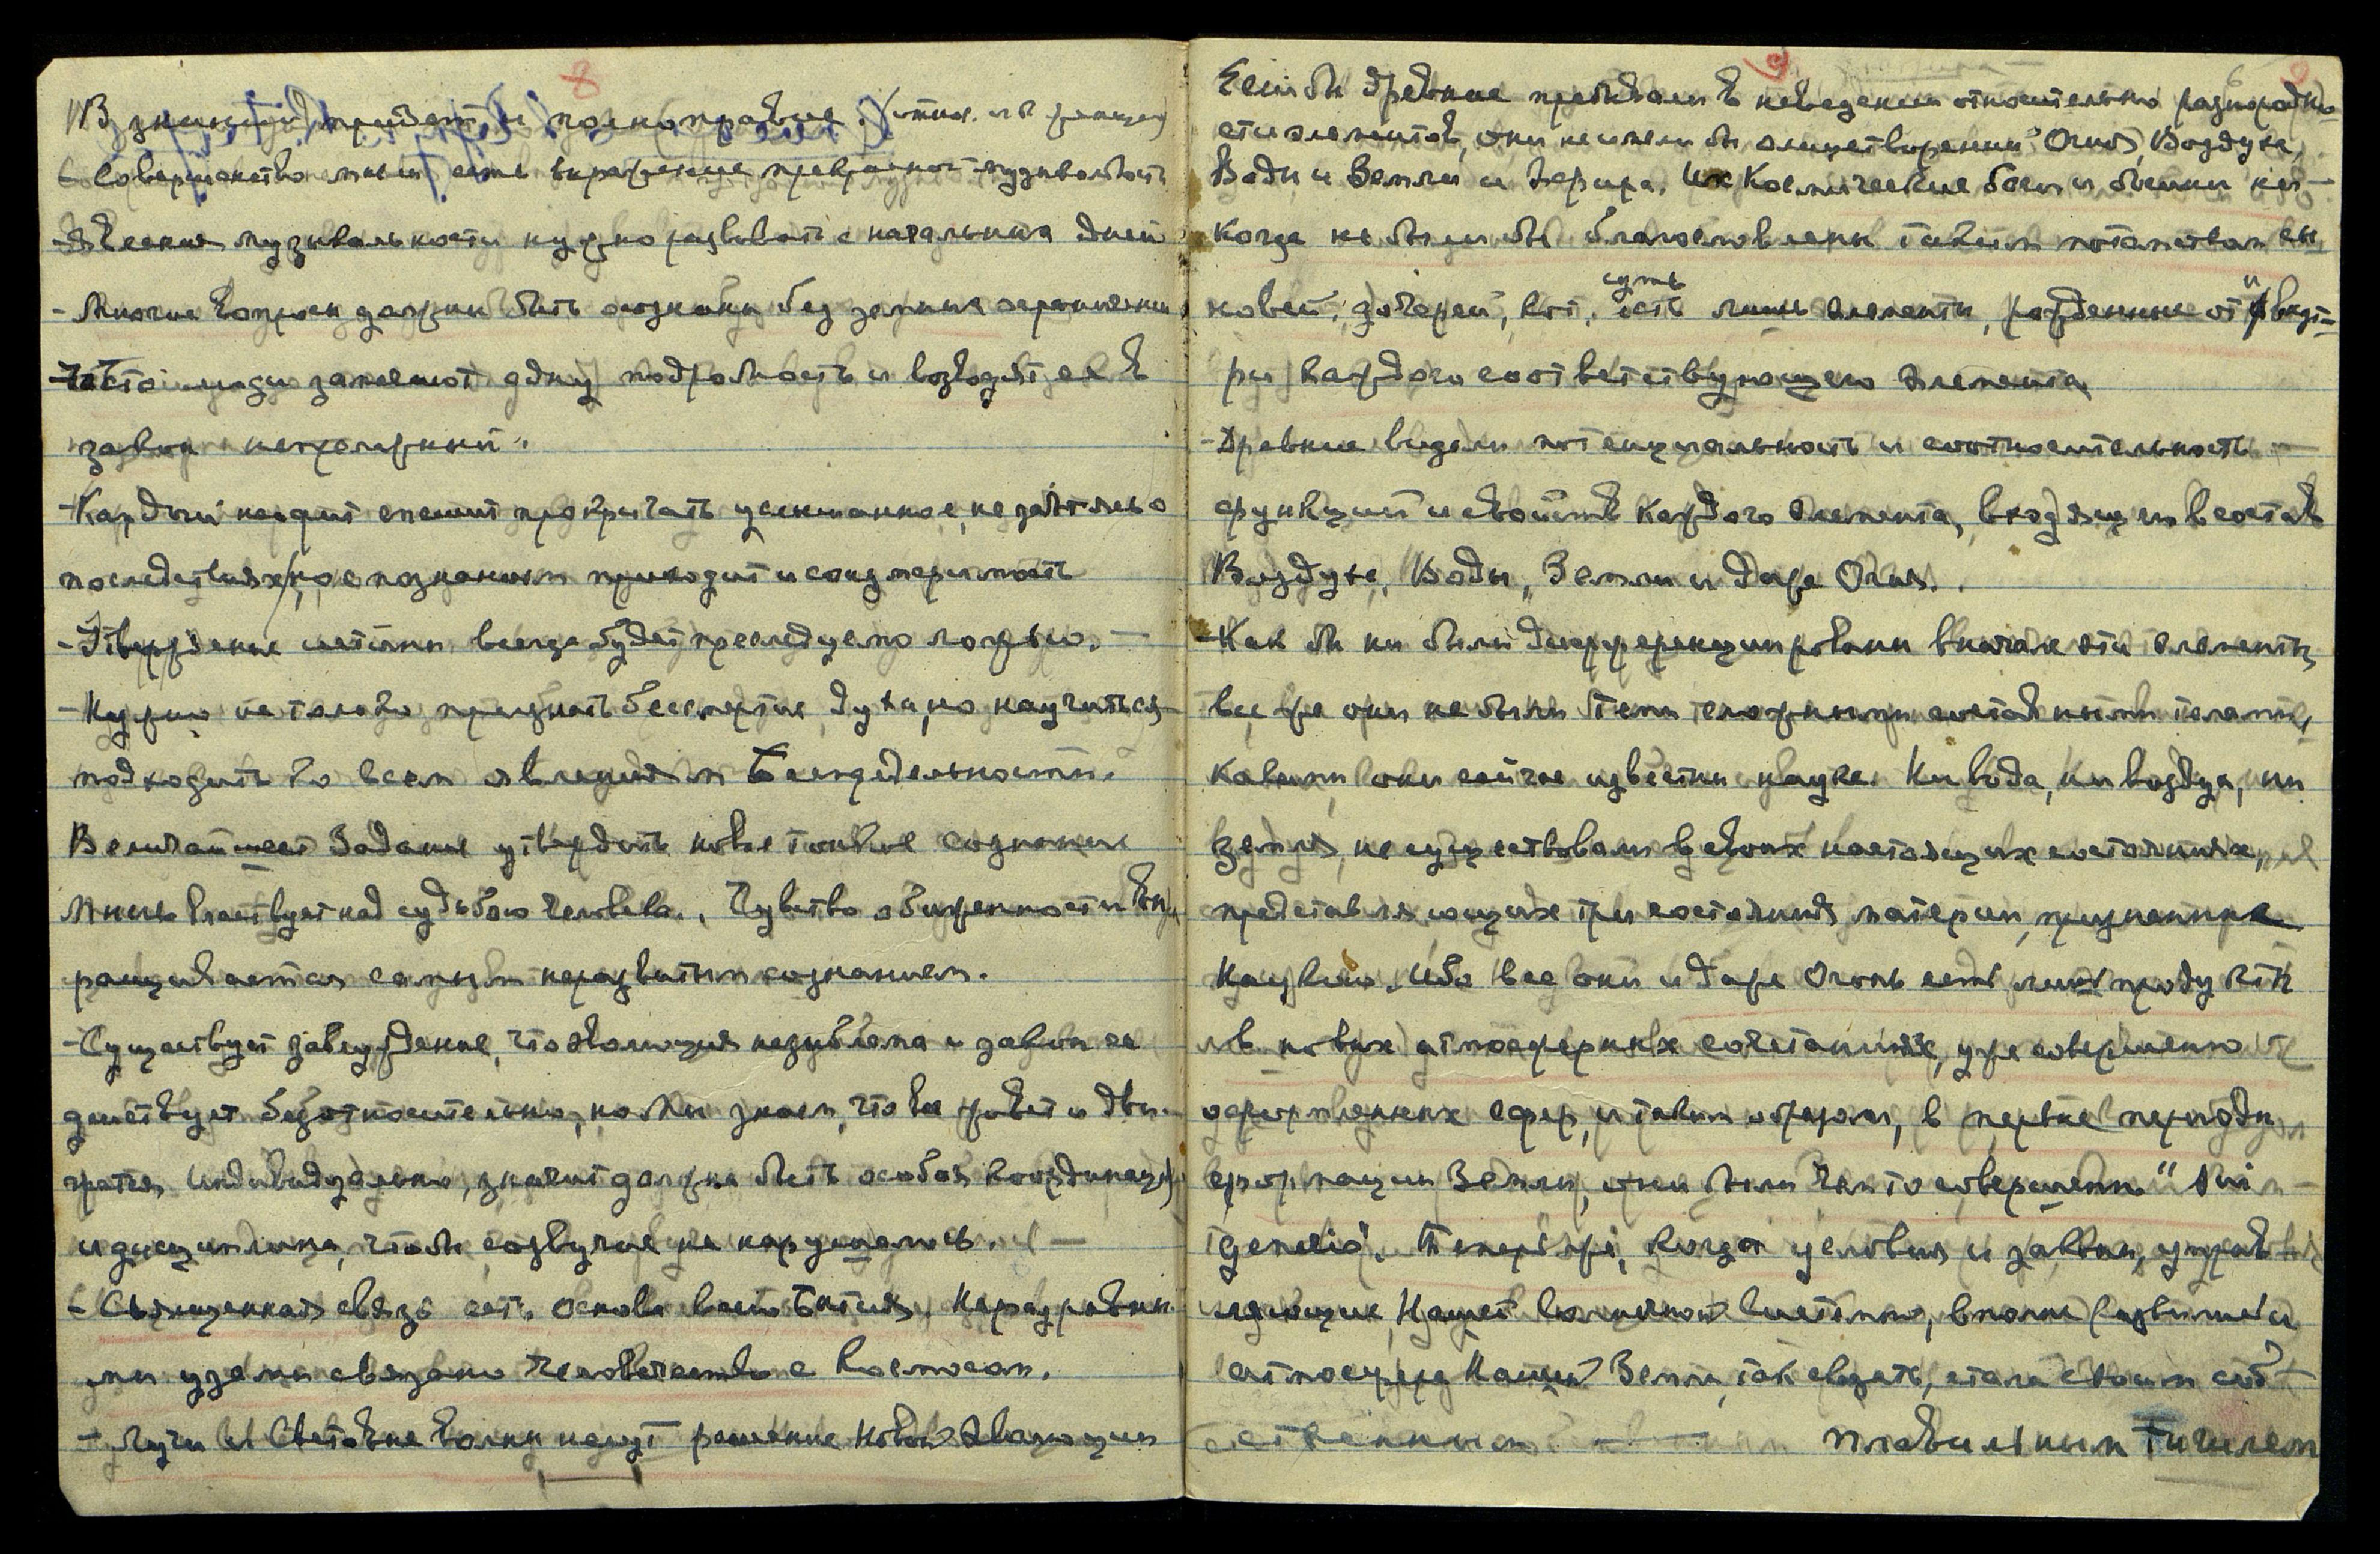 8
В знании придет и полноправие. (
- Совершенство мысли есть выражение прекрасного музыкальность
- Явления музыкальности нужно развивать с начальных дней
- Многие вопросы должны быть осознаны без земных
- Часто люди замечают одну подробность и возводят её в
закон непреложный.
- Каждый невежа спешит прокричать услышанное, не заботясь о
последствиях, но с познанием приходит и соизмеримость
- Утверждение истины всегда будет преследуемо ложью. —
- Нужно не только признать бессмертие духа, но научиться
подходить ко всем явлениям Беспредельности.
Величайшее Задание утвердить новое тонкое сознание
Мысль властвует над судьбою человека. Чувство обиженности
ращивается самым неразвитым сознанием.
- Существует заблуждение, что эволюция незыблема и закон её
действует безотносительно, но Мы знаем, что все живет и дви-
жется индивидуально, значит должна быть особая координация
и дисциплина, чтобы созвучие не нарушалось. —
- Священная связь есть основа всего Бытия. Неразрывны-
ми узами связано Человечество с Космосом.
- Лучи и Световые волны несут решение Новой Эволюции
9
Если бы древние пребывали в неведении относительно разнородно-
сти элементов, они не имели бы олицетворений Огня, Воздуха,
Воды и Земли и Эфира. Их Космические боги и богини ни-
когда не были бы благословлены таким потомством сы-
суть
новей, дочерей, кот. есть лишь элементы, рожденные от и внут-
ри каждого соответствующего элемента
- Древние видели потенциальность и соотносительность —
функций и свойств каждого элемента, входящего в состав
Воздуха, Воды, Земли и даже Огня.
- Как бы ни были дифференцированы вначале эти элементы,
все же они не были теми сложными составными телами,
какими они сейчас известны науке. Ни вода, ни воздух, ни
земля, не существовали в своих настоящих состояниях,
представляющих три состояния материи, признанные
Наукою. Ибо все они и даже Огонь есть лишь продукты
новых атмосферных сочетаний, уже совершенно
оформленных сфер, и таким образом, в первые периоды
формации Земли, они были чем то совершенно "Sui -
genesis". Теперь же, когда условия и законы, управ-
ляющие Нашей солнечной системою, вполне развились и
атмосфера Нашей Земли, так сказать, стала своим соб-
ственным — плавильным Тигилем